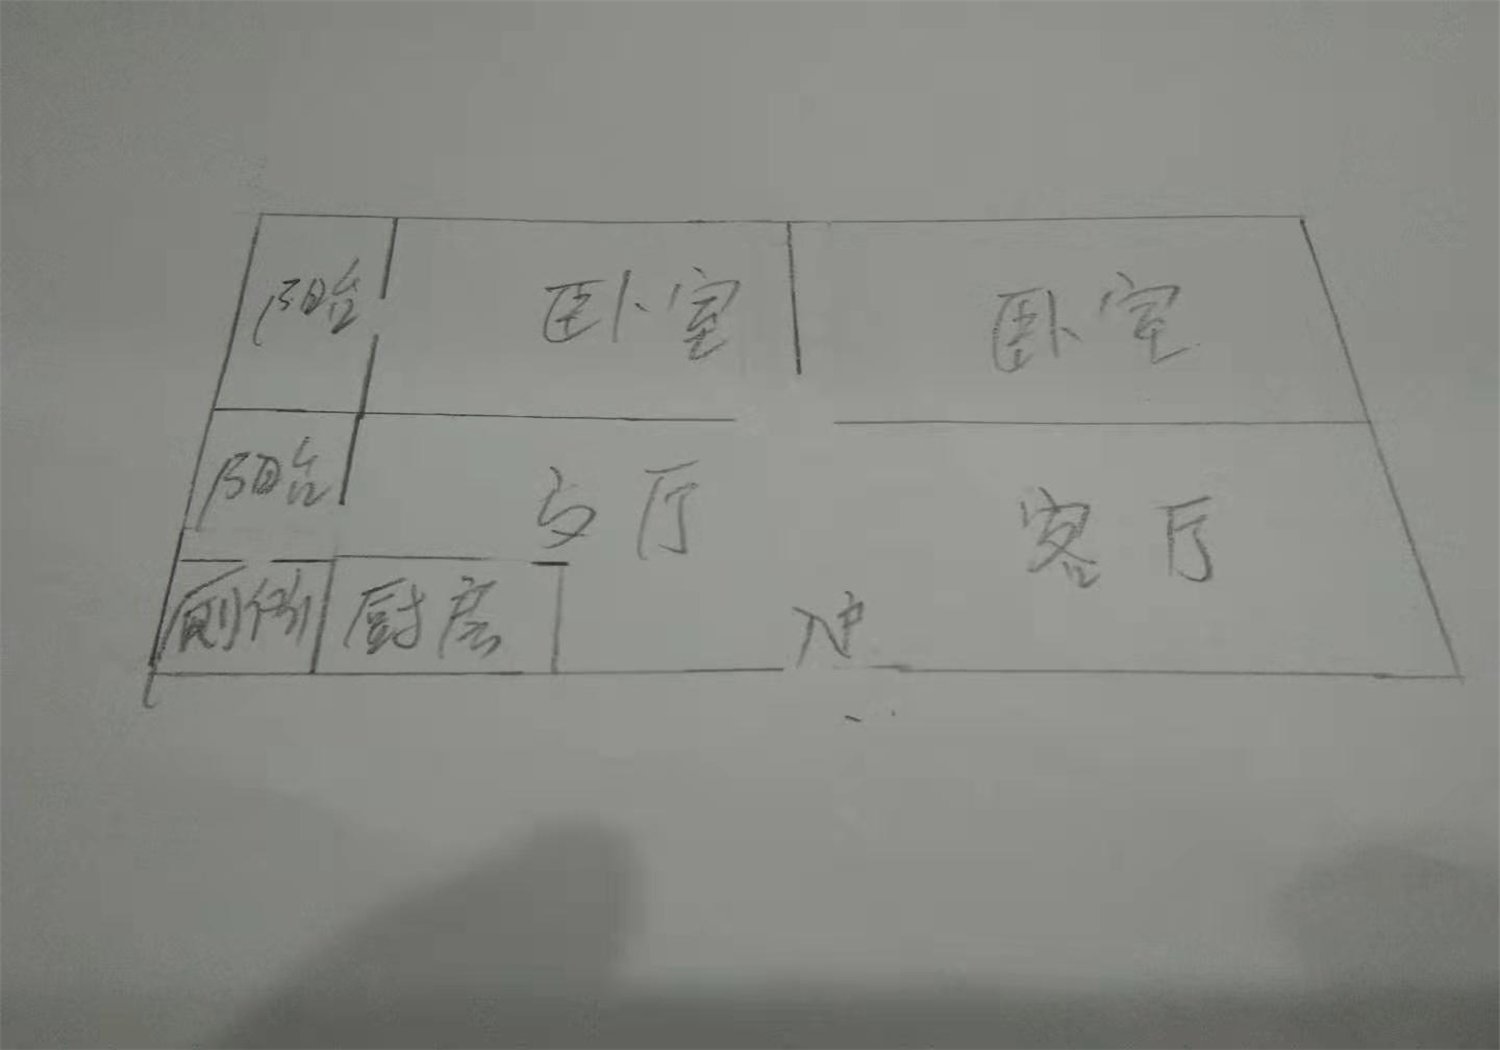 阳台 卧室 卧室
阳台 厅 客厅
厨房 入户